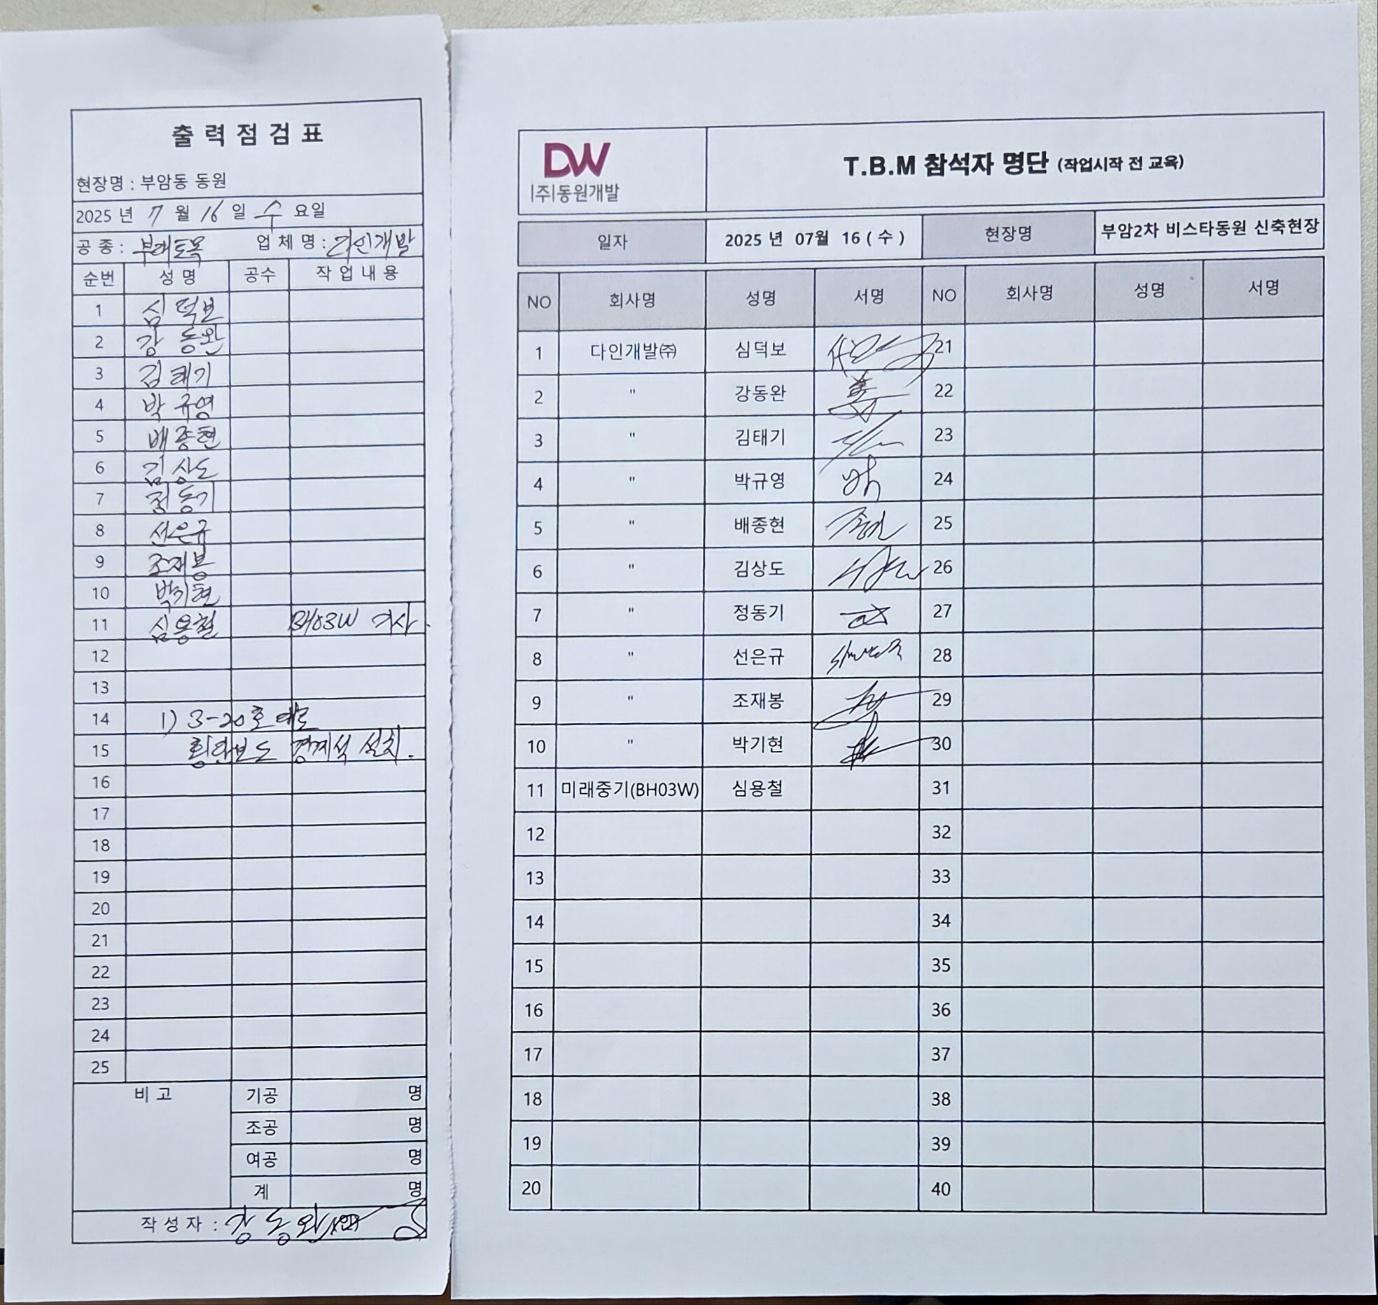 출력점검표
현장명 : 부암동 동원
2025 년 7 월 16 일 수 요일
공 종 : 부대토목 업 체 명 : 다인개발
순번 성 명 공수 작 업 내 용
1 심덕보
2 강동완
3 김태기
4 박규영
5 배종현
6 김상도
7 정동기
8 선은규
9 조재봉
10 박기현
11 심용철 BH03W 기사.
12
13
14 1) 3-20호 대로
15 횡단보도 경계석 설치.
16
17
18
19
20
21
22
23
24
25
비 고 기공 명
조공 명
여공 명
계 명
작 성 자 : 강동완
DW
|주|동원개발
T.B.M 참석자 명단 (작업시작 전 교육)
일자 2025 년 07월 16 ( 수 ) 현장명 부암2차 비스타동원 신축현장
NO 회사명 성명 서명 NO 회사명 성명 서명
1 다인개발㈜ 심덕보 21
2 " 강동완 22
3 " 김태기 23
4 " 박규영 24
5 " 배종현 25
6 " 김상도 26
7 " 정동기 27
8 " 선은규 28
9 " 조재봉 29
10 " 박기현 30
11 미래중기(BH03W) 심용철 31
12 32
13 33
14 34
15 35
16 36
17 37
18 38
19 39
20 40